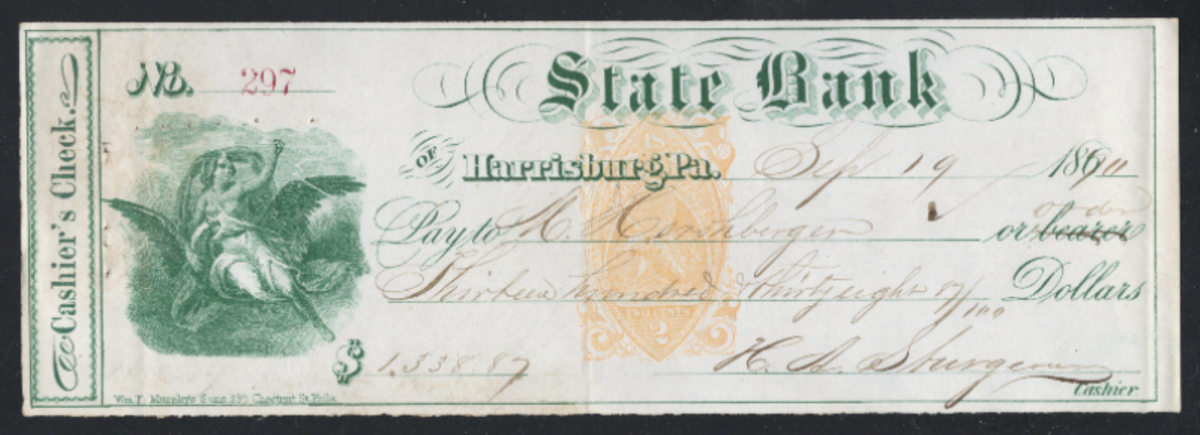 Cashier's Check.
No. 297
State Bank
OF Harrisburg Pa. Sep 19 1870
Pay to M. Hershberger or bearer order
Thirteen hundred & thirty eight 87/100 Dollars
$ 1,338.87
TWO CENTS
2
H. A. Sturgeon
Cashier
Wm. F. Murphy's Sons 339 Chestnut St. Phila.